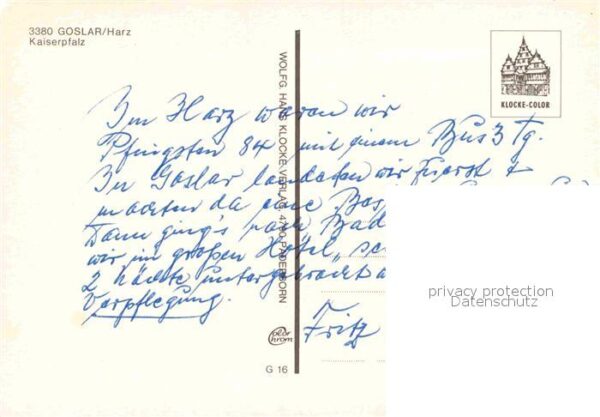 3380 GOSLAR/Harz
Kaiserpfalz
KLOCKE-COLOR
WOLFG. HANS KLOCKE VERLAG 4790 PADERBORN
Im Harz waren wir
Pfingsten 84 mit einem Bus 3 Tg.
In Goslar landeten wir zuerst &
machten da eine
Dann ging's nach Bad
wir im großen Hotel,
2 Nächte untergebracht
Verpflegung.
Fritz
color
chrom
G 16
privacy protection
Datenschutz